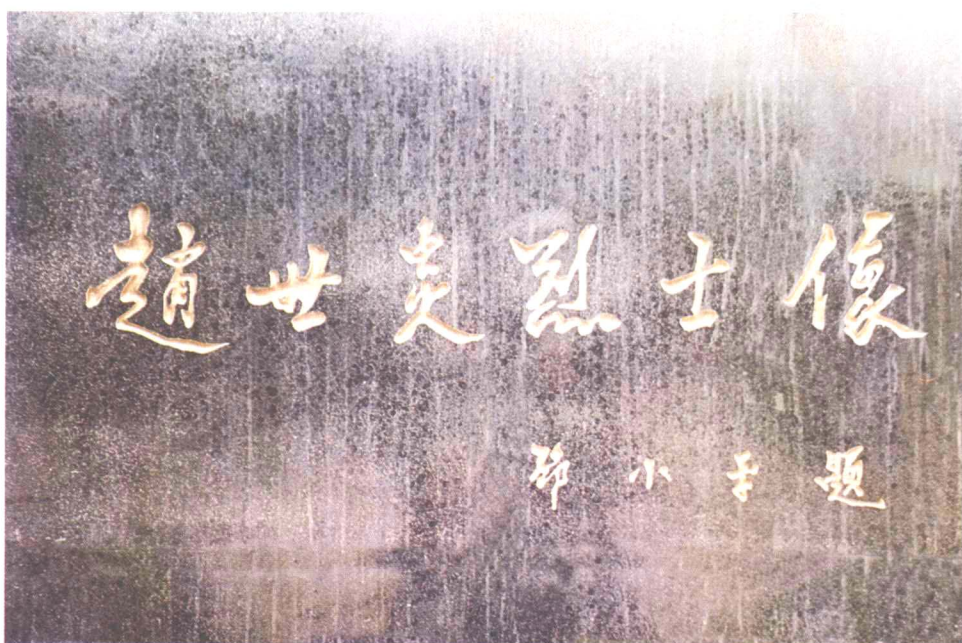 趙世炎烈士像
鄧小平题